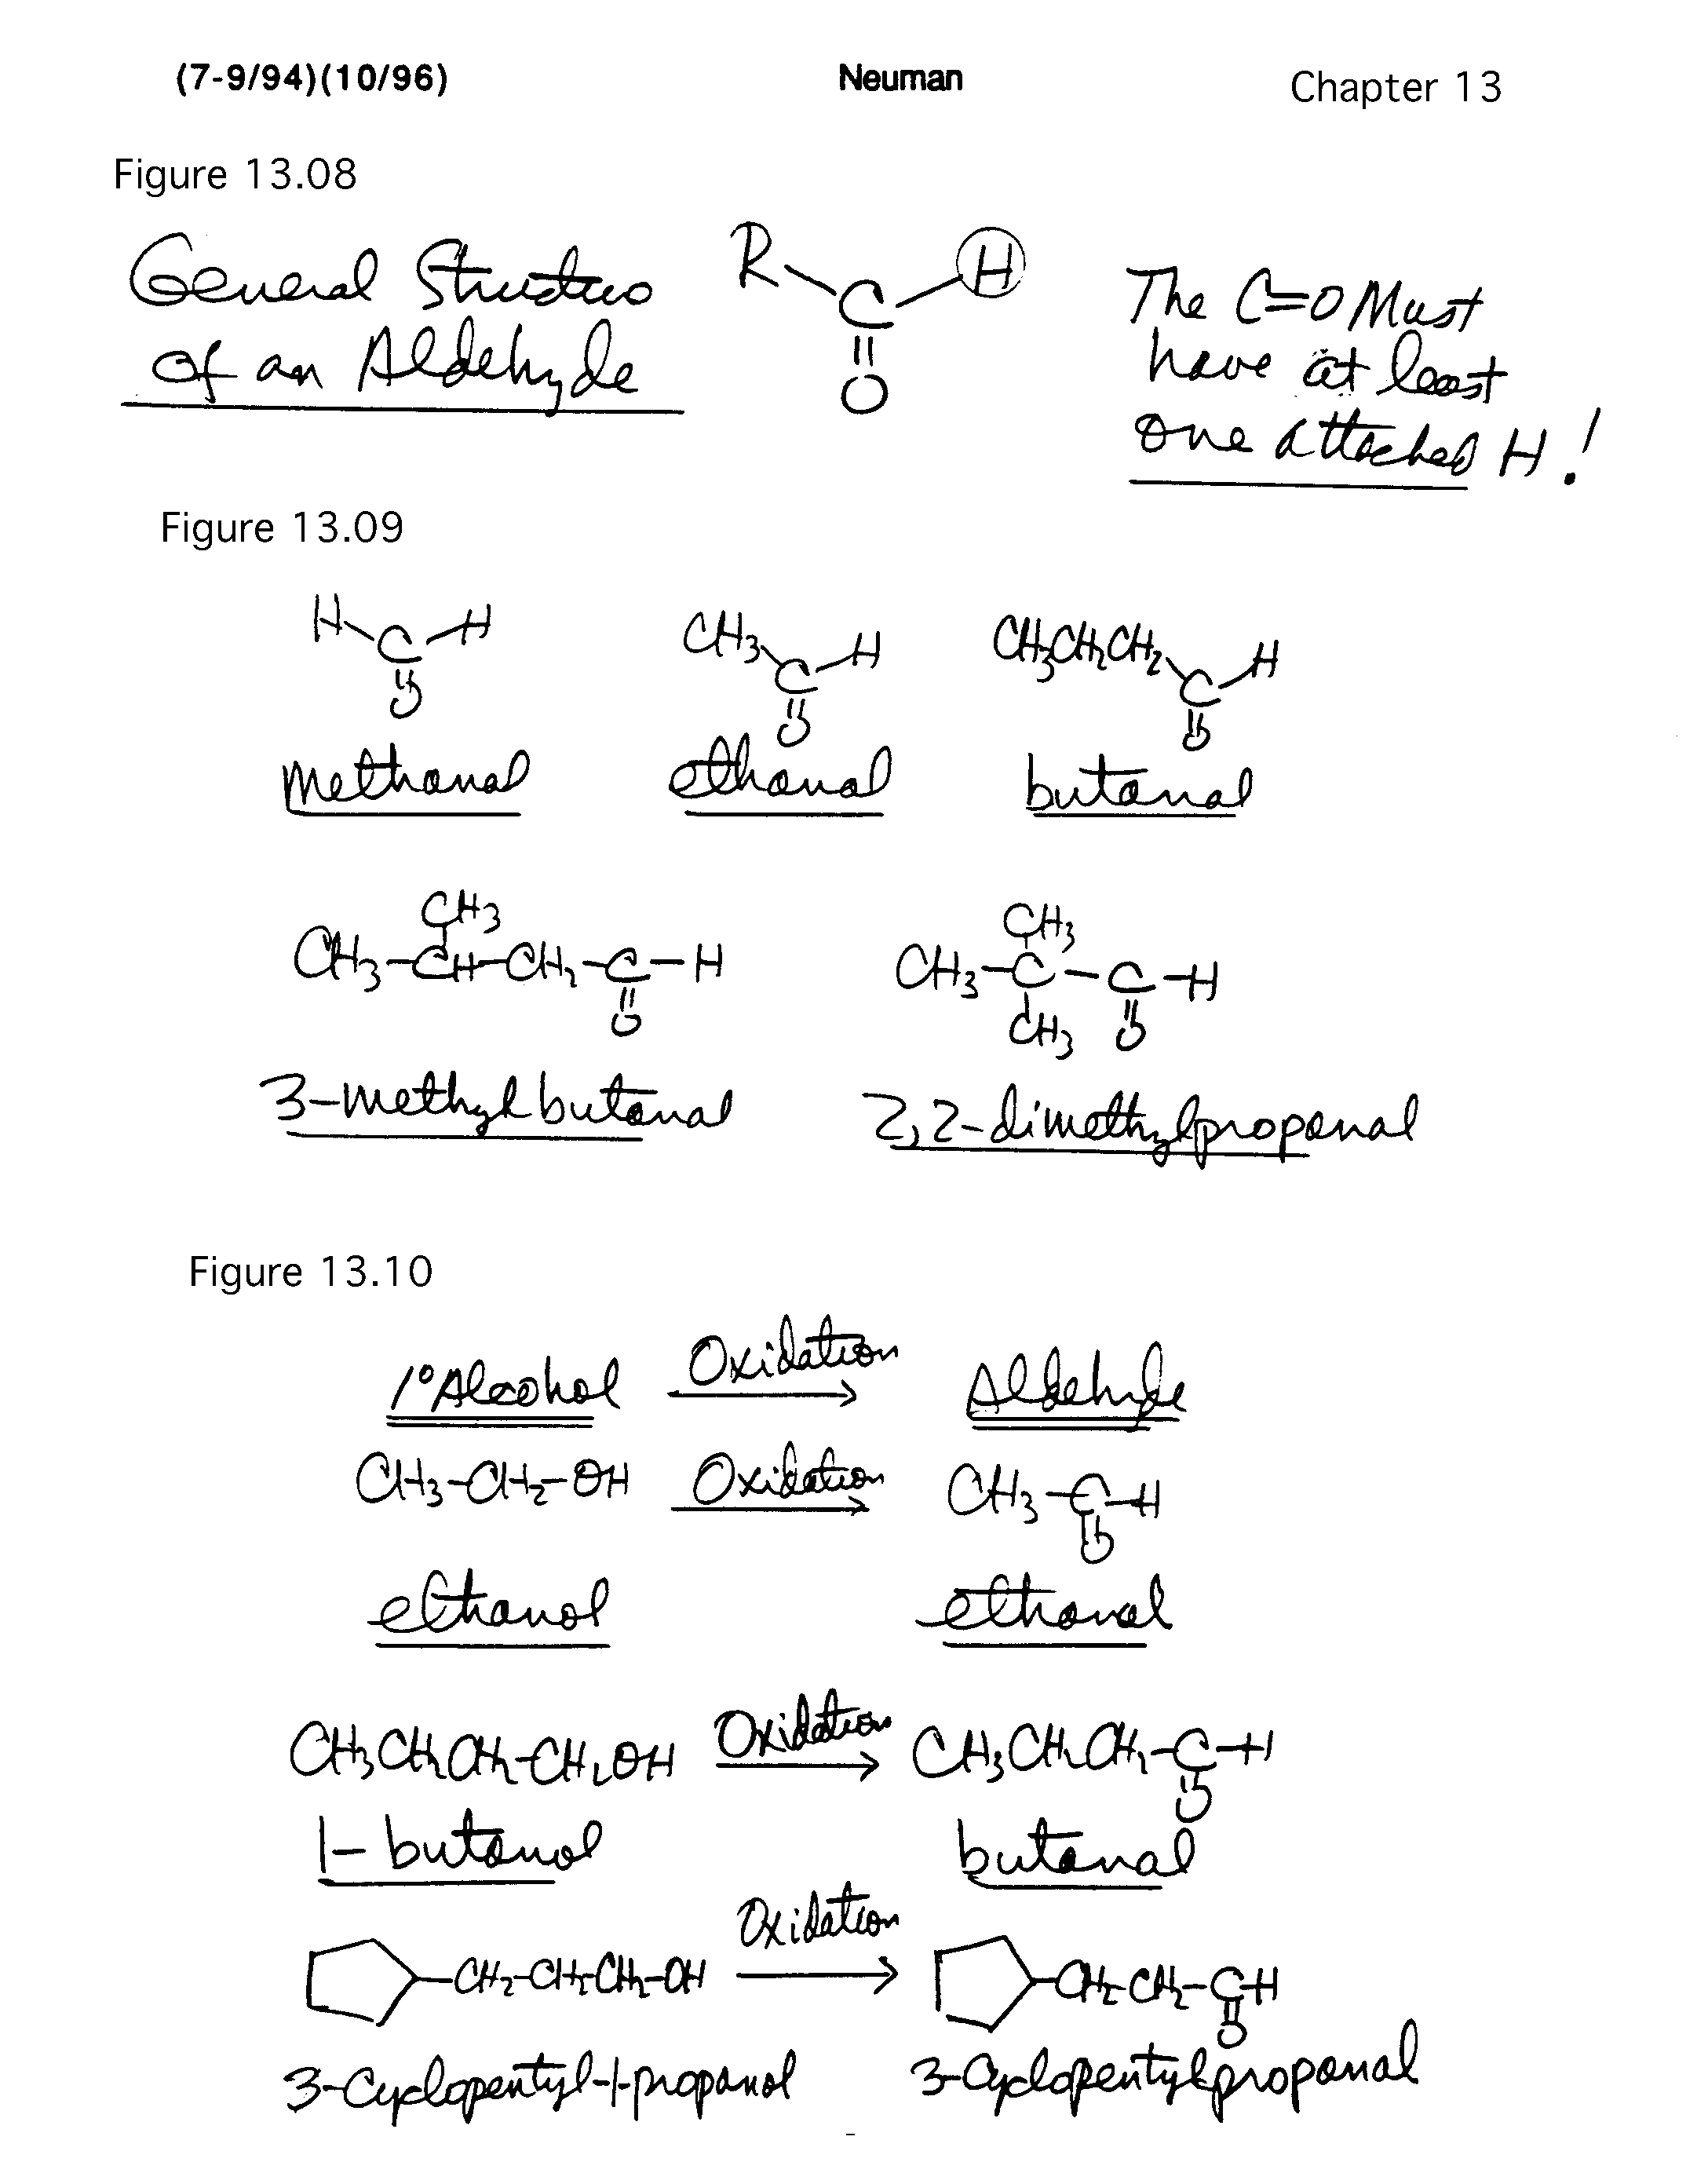 (7-9/94)(10/96) Neuman Chapter 13
Figure 13.08
General Structure
of an Aldehyde
R C H
O
The C=O Must
have at least
one attached H!
Figure 13.09
H C H
O
methanal
CH3 C H
O
ethanal
CH3CH2CH2 C H
O
butanal
CH3
CH3-CH-CH2-C-H
O
3-methylbutanal
CH3
CH3-C-C-H
CH3 O
2,2-dimethylpropanal
Figure 13.10
1° Alcohol Oxidation Aldehyde
CH3-CH2-OH Oxidation CH3-C-H
O
ethanol ethanal
CH3CH2CH2-CH2OH Oxidation CH3CH2CH2-C-H
O
1-butanol butanal
Oxidation
-CH2-CH2-CH2-OH -CH2-CH2-C-H
O
3-Cyclopentyl-1-propanol 3-Cyclopentylpropanal